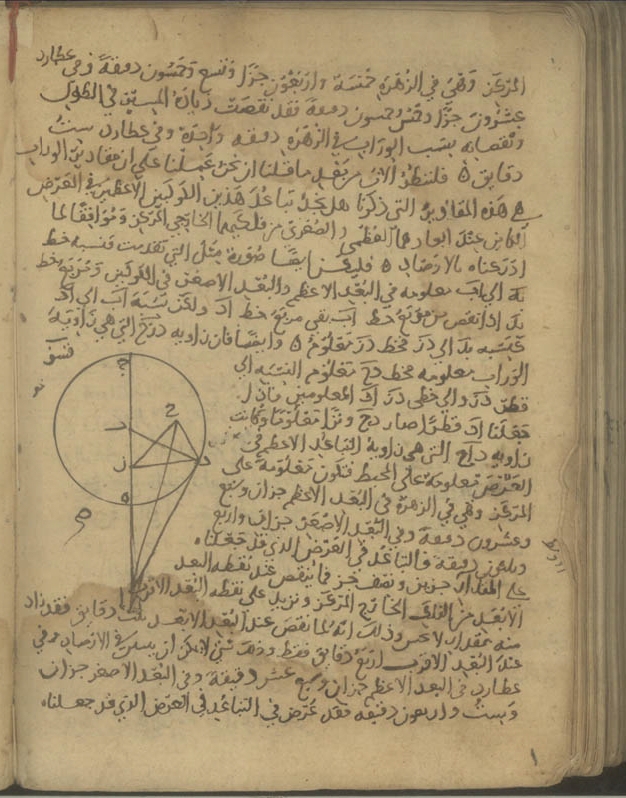 المركز وهي في الزهرة خمسة واربعون جزا وتسع وخمسون دقيقة وفي عطارد
عشرون جزا وخمس وخمسون دقيقة فقد نقصت زيادة المسير في الطول
ونقصانه بسبب الوراب في الزهرة دقيقه واحدة وفي عطارد ست
دقايق ه فلننظر الان من بعد ما قلنا ان نحن عملنا على ان مقادير الوراب
هي هذه المقادير التي ذكرنا هل نجد تباعد هذين الكوكبين الاعظم في العرض
الكاين عند ابعادهما العظمى والصغرى من فلكهما الخارجي المركز موافقا لما
ادركناه بالارصاد ه فليكن ايضا صورة مثل التي تقدمت فنسبة خط
الى اب معلومه في البعد الاعظم والبعد الاصغر في الكوكبين ومربع خط
اذا نقص من مربع خط اب بقي مربع خط اد ولكن نسبة اب الى اد
كنسبه بد الى دز فخط دز معلوم ه وايضا فان زاويه دزح التي هي زاويه
الوراب معلومه فخط دح معلوم النسبه الى
قطر دز والى خطي دز اد المعلومين فاذا
جعلنا اد قطرا صار دح وترا معلوما وكانت
زاويه داح التي هي زاوية التباعد الاعظم في
العرض معلومة على المحيط فتكون معلومة على
المركز وهي في الزهرة في البعد الاعظم جزان وسبع
وعشرون دقيقة وفي البعد الاصغر جزان واربع
وثلثون دقيقة والتباعد في العرض الذي قد جعلناه
على المثال جزين ونصف جز فما ينقص عند نقطه البعد
الابعد من الفلك الخارج المركز ويزيد على نقطه البعد الاقرب
منه بمقدار لا يحس وذلك انه انما نقص عند البعد الابعد ثلث دقايق فقط وزاد
عند البعد الاقرب اربع دقايق فقط وذلك شي لا يمكن ان يستبين في الارصاد وهي في
عطارد في البعد الاعظم جزان وسبع عشرة دقيقة وفي البعد الاصغر جزان
وست واربعون دقيقه فقد عرض في التباعد في العرض الذي قد جعلناه